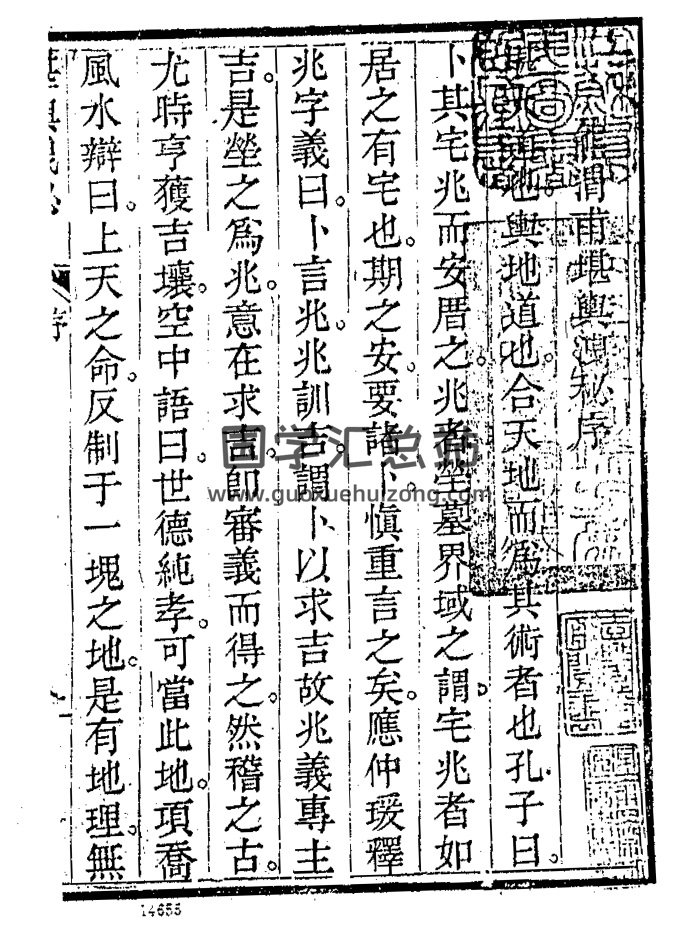 熊渭甫堪輿漏秘序
堪天道也輿地道也合天地而爲其術者也孔子曰
卜其宅兆而安厝之兆者塋墓界域之謂宅兆者如
居之有宅也期之安要諸卜愼重言之矣應仲瑗釋
兆字義曰卜言兆兆訓吉謂卜以求吉故兆義專主
吉是塋之爲兆意在求吉卽審義而得之然稽之古
尤時亨獲吉壤空中語曰世德純孝可當此地項喬
風水辯曰上天之命反制于一塊之地是有地理無
序
國学汇总站
www.guoxuehuizong.com
14655